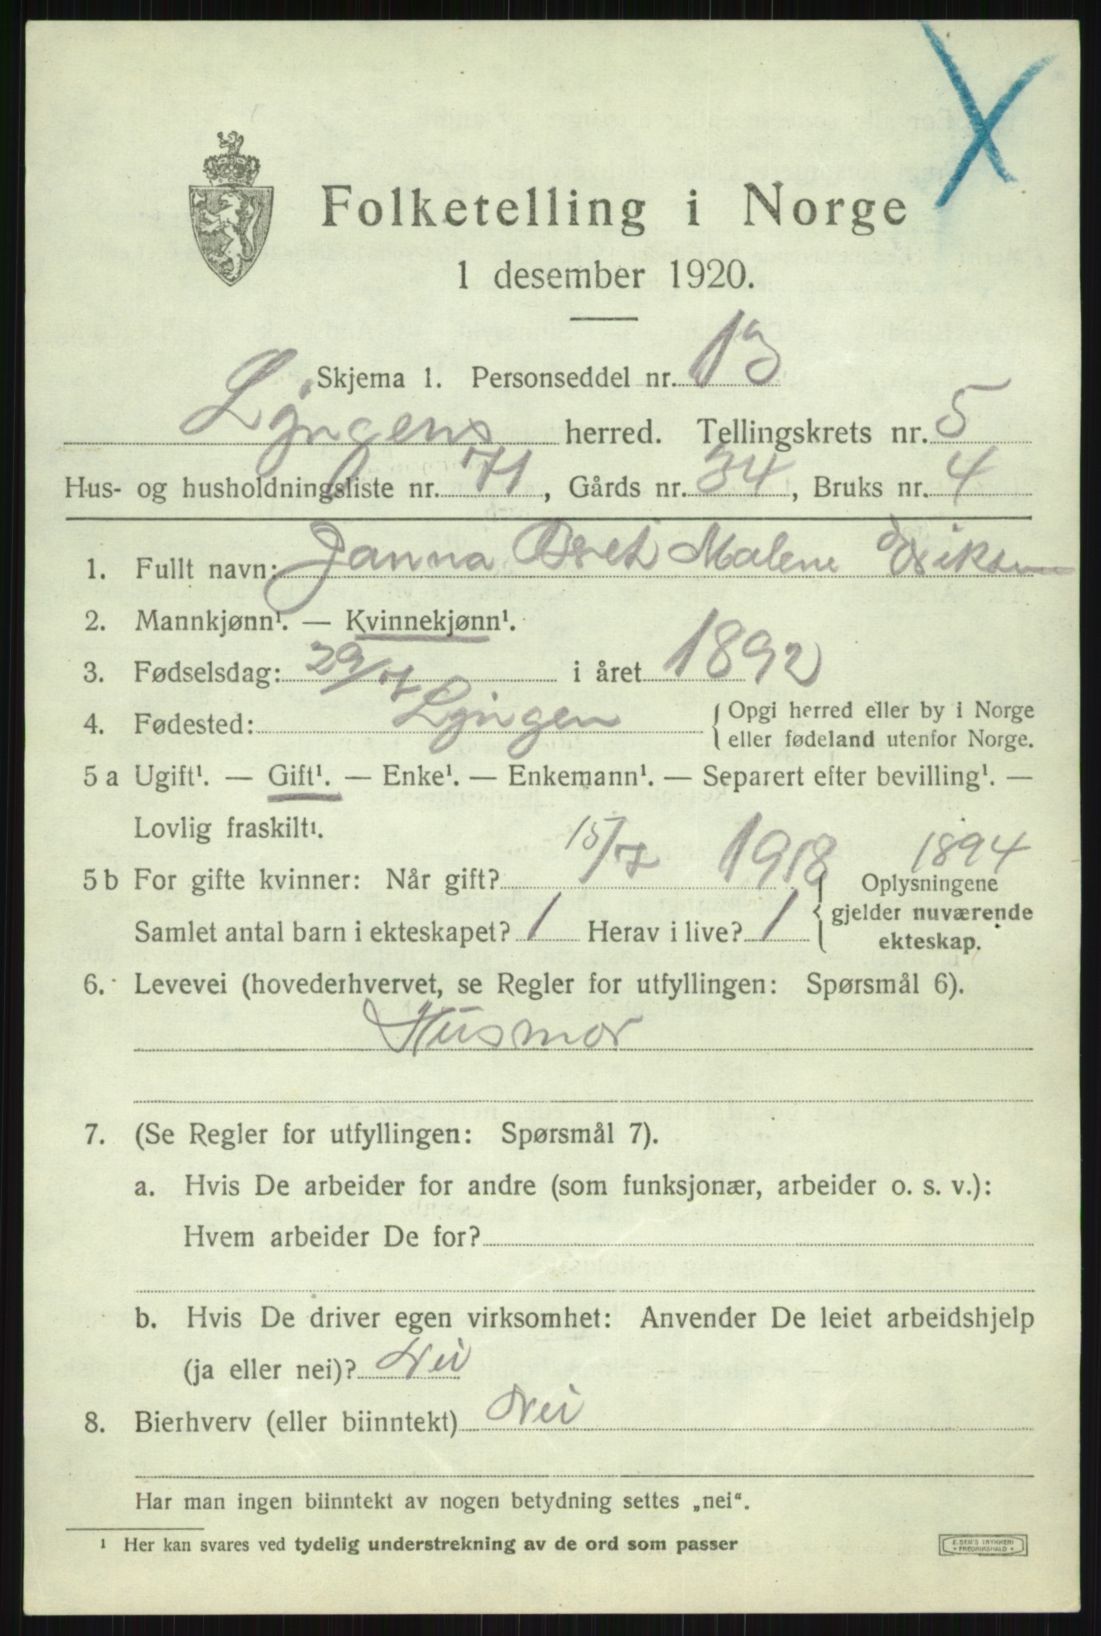 Folketelling i Norge
1 desember 1920.
Skjema 1. Personseddel nr. 13
Lyngens herred. Tellingskrets nr. 5
Hus- og husholdningsliste nr. 71, Gårds nr. 34, Bruks nr. 4
1. Fullt navn: Janna Beret Malene Eriksen
2. Mannkjønn¹. — Kvinnekjønn¹.
3. Fødselsdag: 29/7 i året 1892
4. Fødested: Lyngen { Opgi herred eller by i Norge
eller fødeland utenfor Norge.
5 a Ugift¹. — Gift¹. — Enke¹. — Enkemann¹. — Separert efter bevilling¹. —
Lovlig fraskilt¹.
1894
5 b For gifte kvinner: Når gift? 15/7 1918 { Oplysningene
gjelder nuværende
Samlet antal barn i ekteskapet? 1 Herav i live? 1
ekteskap.
6. Levevei (hovederhvervet, se Regler for utfyllingen: Spørsmål 6).
Husmor
7. (Se Regler for utfyllingen: Spørsmål 7).
a. Hvis De arbeider for andre (som funksjonær, arbeider o. s. v.):
Hvem arbeider De for?
b. Hvis De driver egen virksomhet: Anvender De leiet arbeidshjelp
(ja eller nei)? Nei
8. Bierhverv (eller biinntekt) Nei
Har man ingen biinntekt av nogen betydning settes „nei“.
¹ Her kan svares ved tydelig understrekning av de ord som passer
FREDRIKSHALD